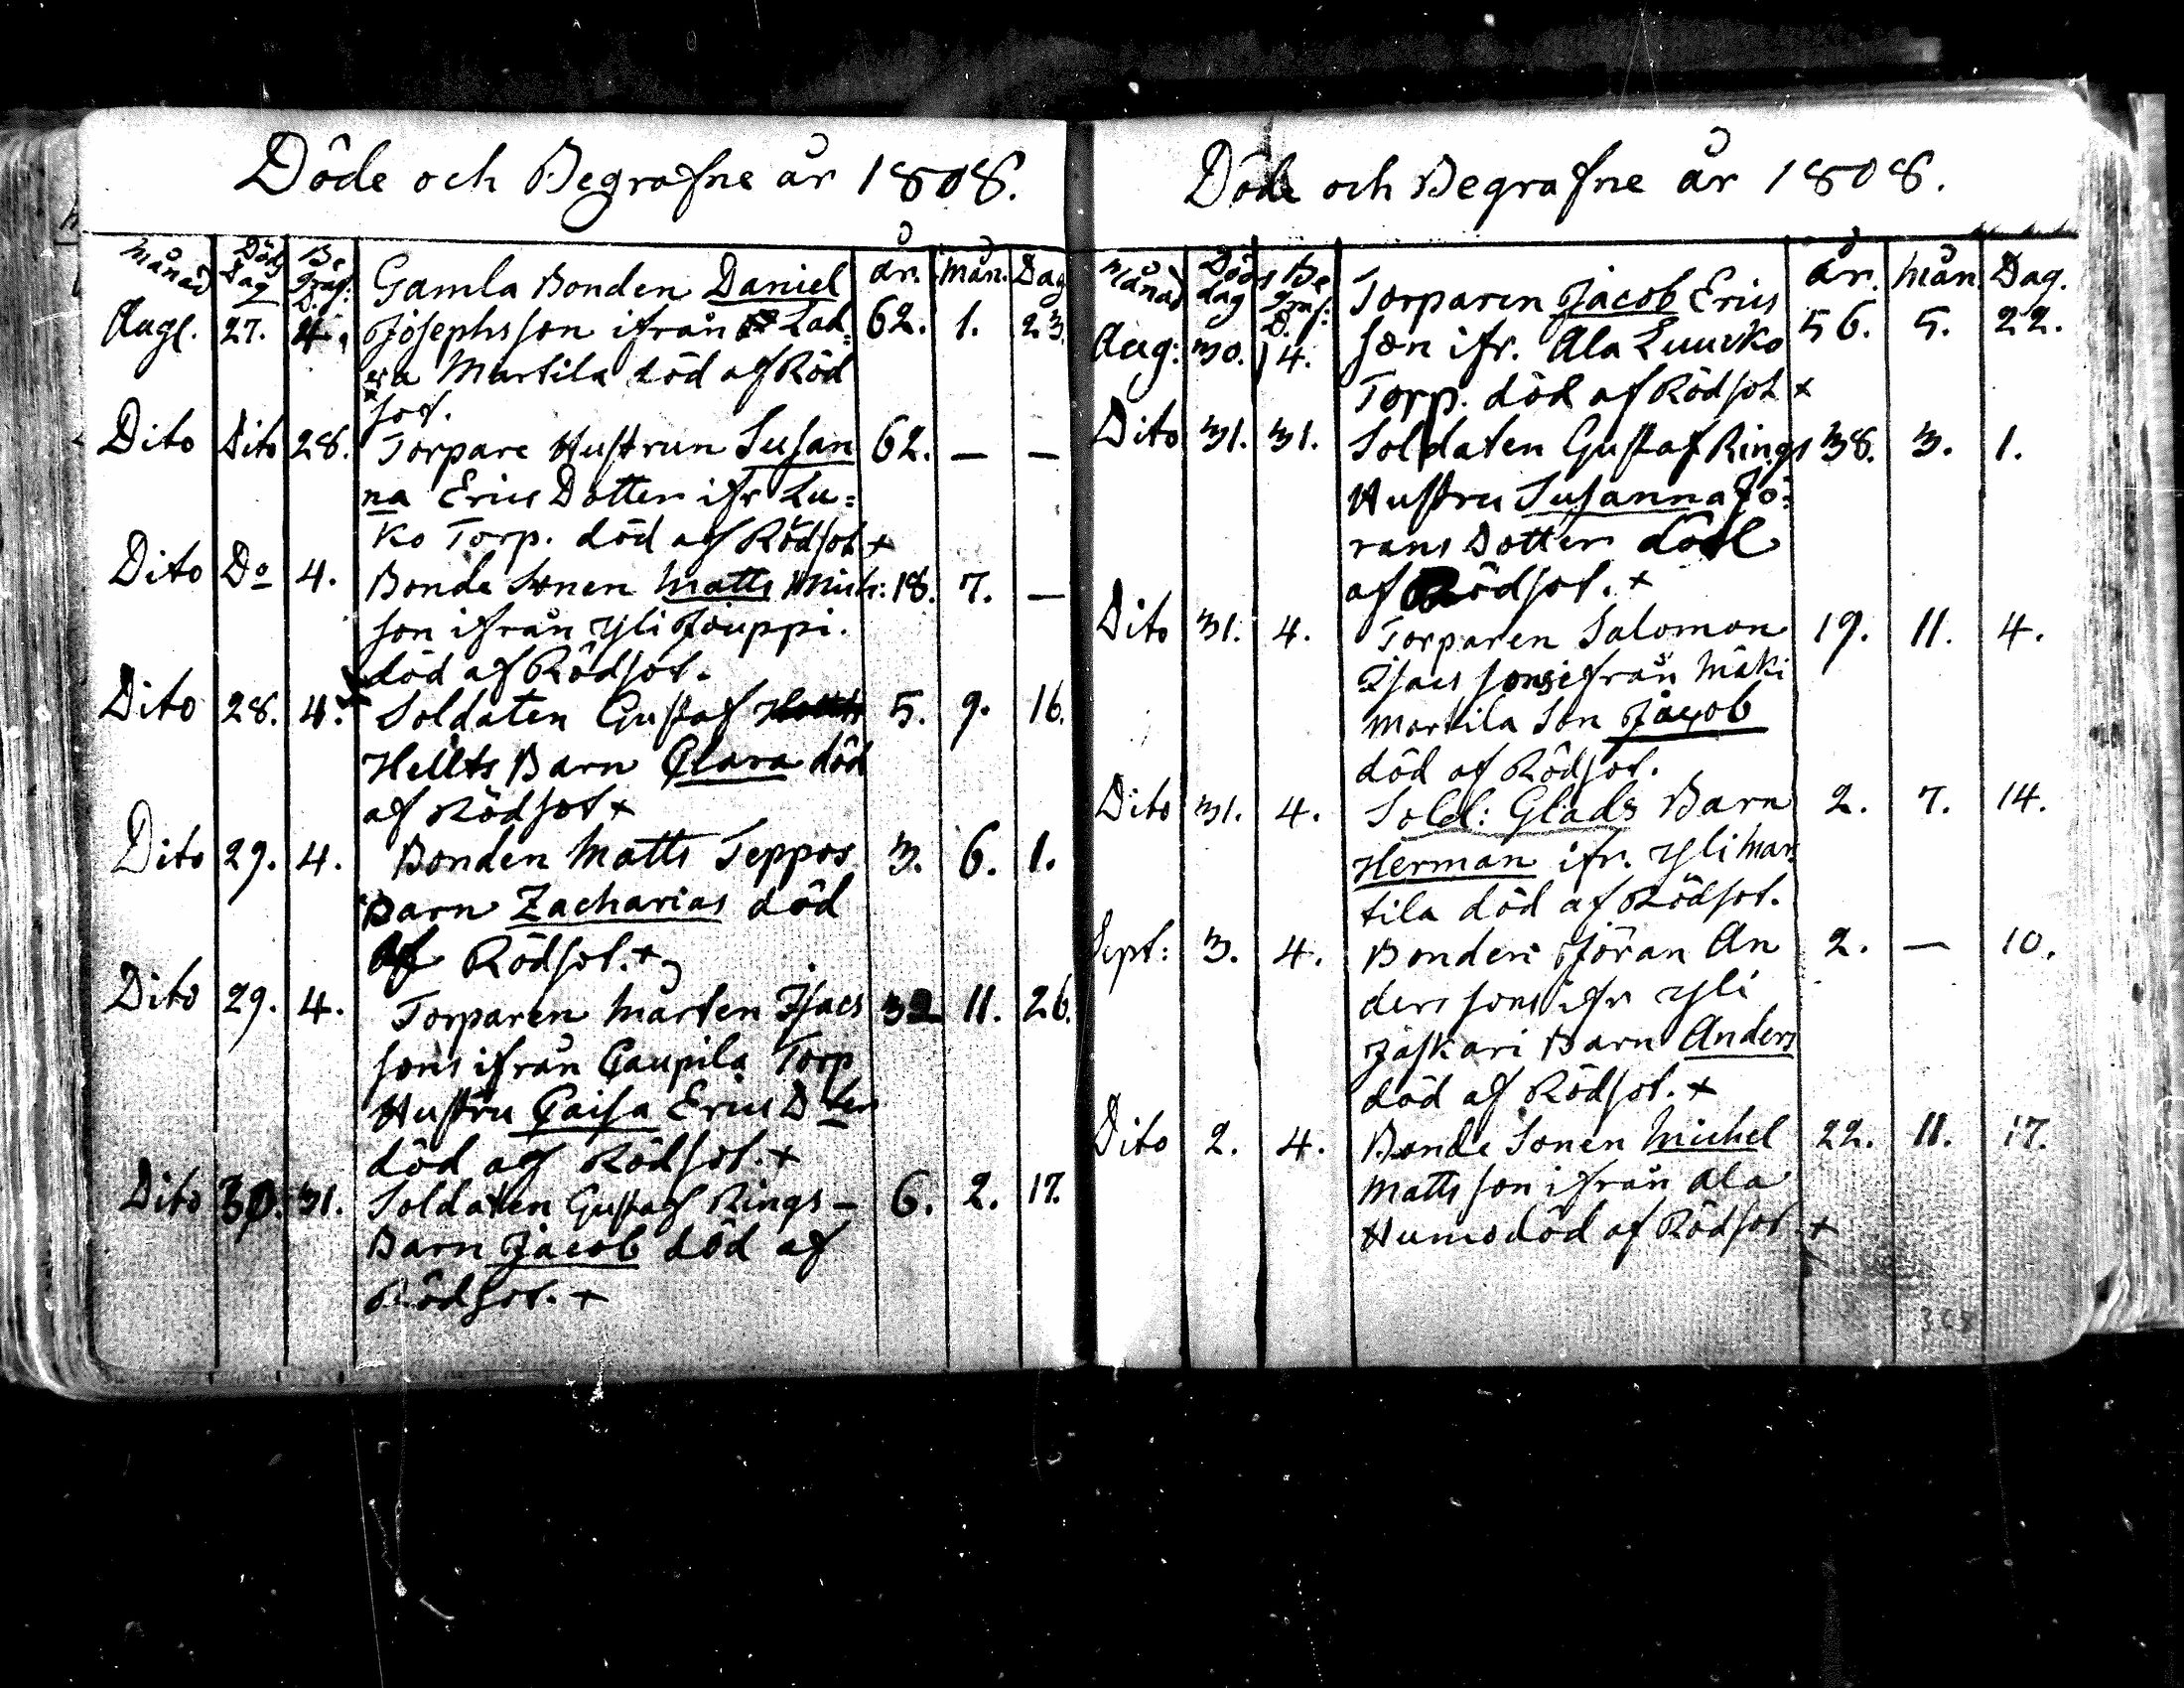 Döde och Begrafne år 1808.
Månad Döds Dag Be Graf: D. år. Mån. Dag
Gamla Bonden Daniel
Augt. 27. 4. Josephsson ifrån Lad= 62. 1. 23.
era Martila död af Röd
sot.
Dito Dito 28. Torpare Hustrun Susan 62. — —
na Erics Dotter ifr Lu=
ko Torp. död af Rödsot +
Dito Do 4. Bonde Sonen Matts Mich: 18. 7. —
son ifrån Yli Jouppi.
död af Rödsot.
Dito 28. 4. Soldaten Gustaf 5. 9. 16.
Hellts Barn Clara död
af Rödsot +
Dito 29. 4. Bonden Matts Teppos 3. 6. 1.
Barn Zacharias död
af Rödsot. +
Dito 29. 4. Torparen Mårten Isacs 32 11. 26.
sons ifrån Caupila Torp
Hustru Caisa Erics Dter
död af Rödsot. +
Dito 30. 31. Soldaten Gustaf Rings – 6. 2. 17.
Barn Jacob död af
Rödsot. +
Döde och Begrafne år 1808.
Månad Döds dag Be Graf: D. år. Mån Dag.
Torparen Jacob Erics
Aug: 30. 4. son ifr. Ala Luucko 56. 5. 22.
Torp. död af Rödsot +
Dito 31. 31. Soldaten Gustaf Rings 38. 3. 1.
Hustru Susanna Jö=
rans Dotter död
af Rödsot. +
Dito 31. 4. Torparen Salomon 19. 11. 4.
Isacs sons ifrån Mäki
Martila Son Jacob
död af Rödsot.
Dito 31. 4. Sold: Glads Barn 2. 7. 14.
Herman ifr. Yli Mar=
tila död af Rödsot.
Sept: 3. 4. Bonden Jöran An 2. — 10.
ders sons ifr Yli
Jäskari Barn Anders
död af Rödsot. +
Dito 2. 4. Bonde Sonen Michel 22. 11. 17.
Matts son ifrån Ala
Humo död af Rödsot. +